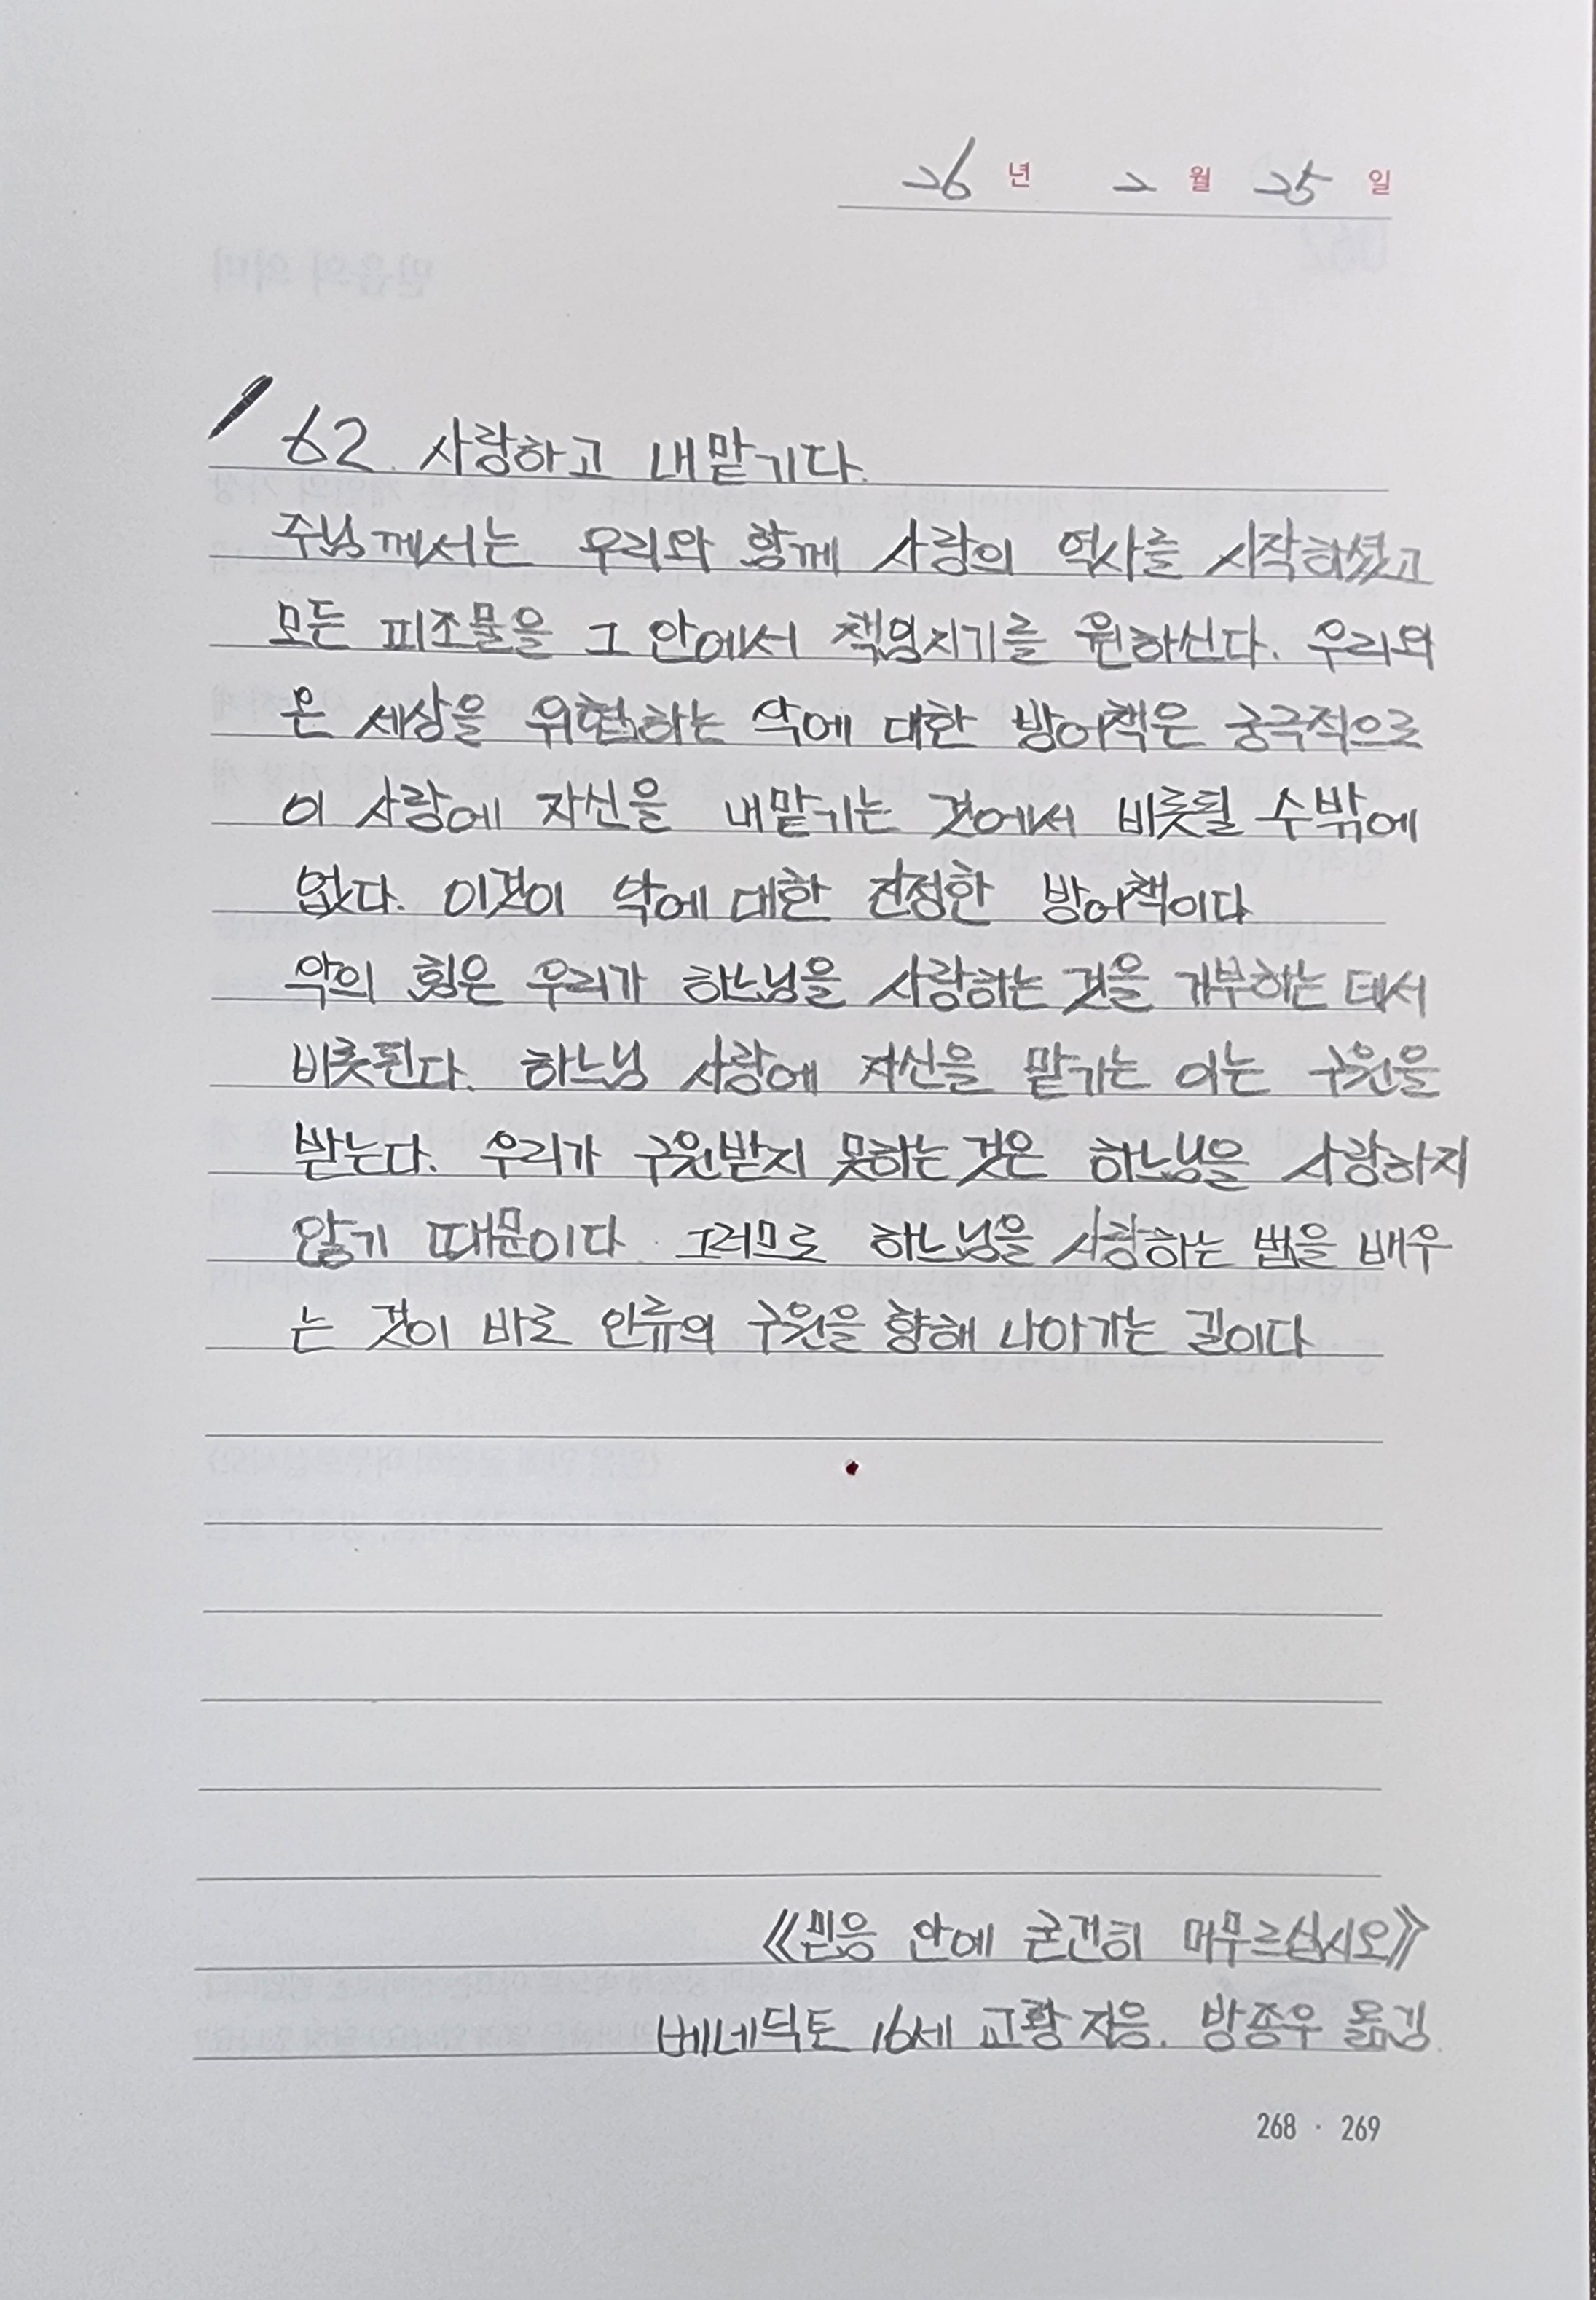 26년 2월 25일
62. 사랑하고 내맡기다.
주님께서는 우리와 함께 사랑의 역사를 시작하셨고
모든 피조물을 그 안에서 책임지기를 원하신다. 우리와
온 세상을 위협하는 악에 대한 방어책은 궁극적으로
이 사랑에 자신을 내맡기는 것에서 비롯될 수밖에
없다. 이것이 악에 대한 진정한 방어책이다
악의 힘은 우리가 하느님을 사랑하는 것을 거부하는 데서
비롯된다. 하느님 사랑에 자신을 맡기는 이는 구원을
받는다. 우리가 구원받지 못하는 것은 하느님을 사랑하지
않기 때문이다. 그러므로 하느님을 사랑하는 법을 배우
는 것이 바로 인류의 구원을 향해 나아가는 길이다
《믿음 안에 굳건히 머무르십시오》
베네딕토 16세 교황 지음. 방종우 옮김.
268 · 269